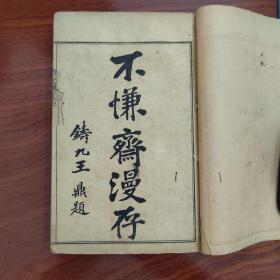 不慊齋漫存
鑄九王鼎題